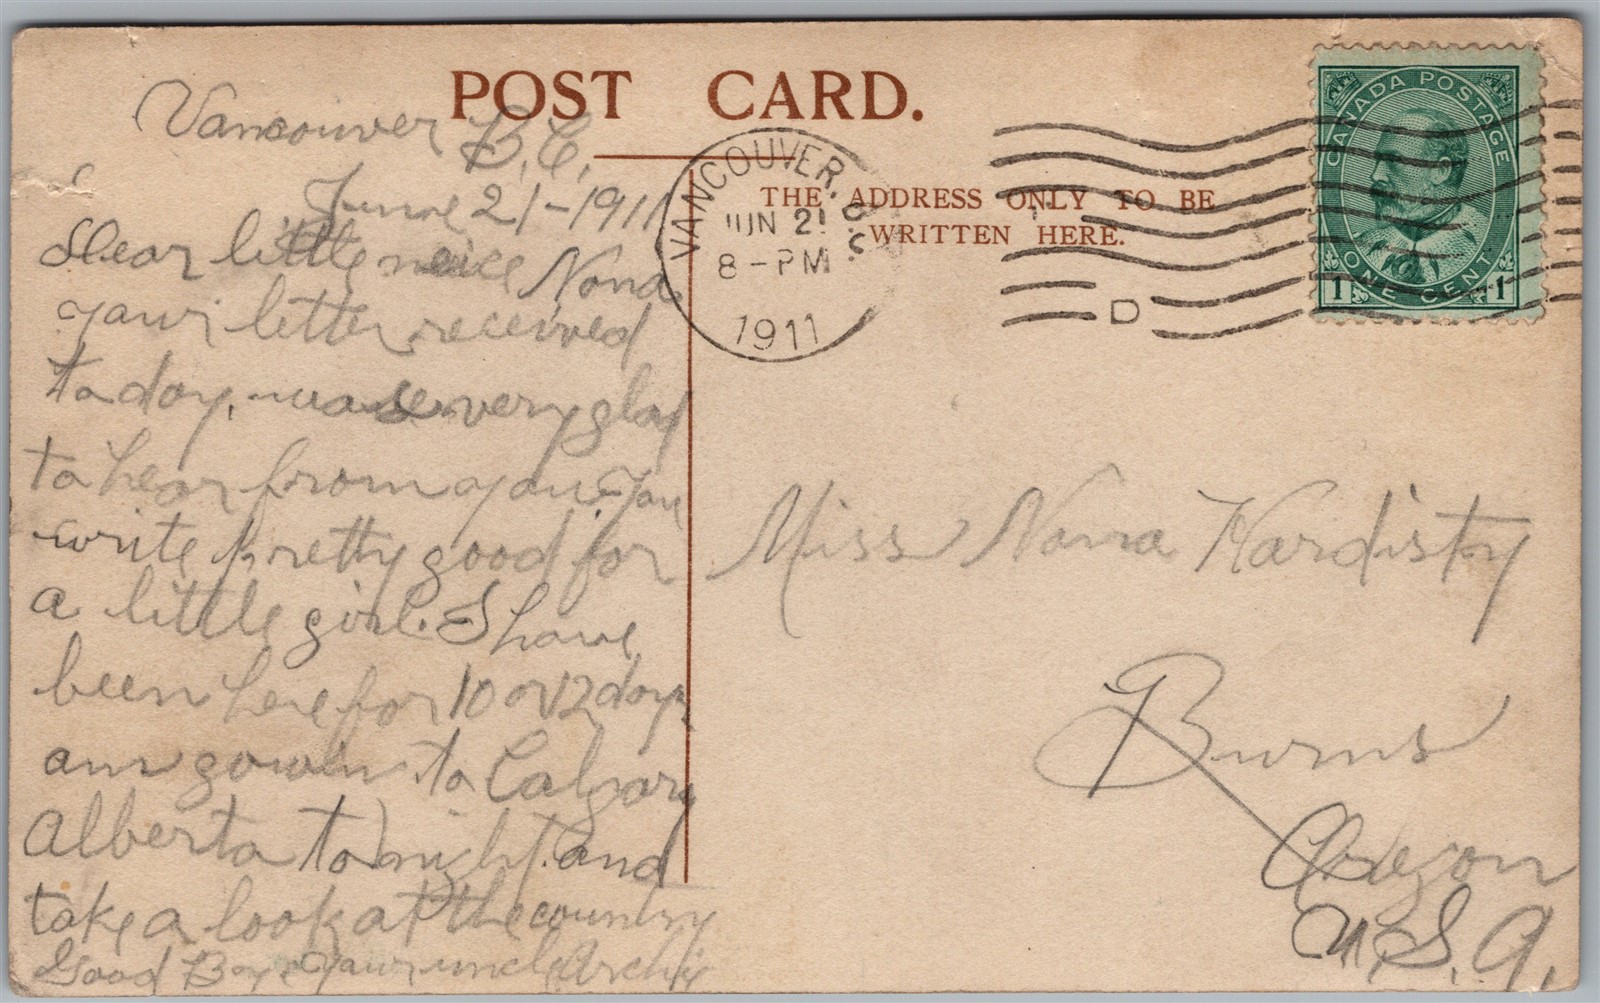 POST CARD.
Vancouver B.C.
June 21-1911
Dear little neice Nona
your letter received
to day. was very glad
to hear from you. You
write pretty good for
a little girl. I have
been here for 10 or 12 days
am gowin to Calgary
Alberta to night. and
take a look at the country
Good By. your uncle Archie
VANCOUVER, B.C.
JUN 21
8-PM
1911
D
THE ADDRESS ONLY TO BE
WRITTEN HERE.
CANADA POSTAGE
1 ONE CENT 1
Miss Nona Hardisty
Burns
Oregon
U.S.A.